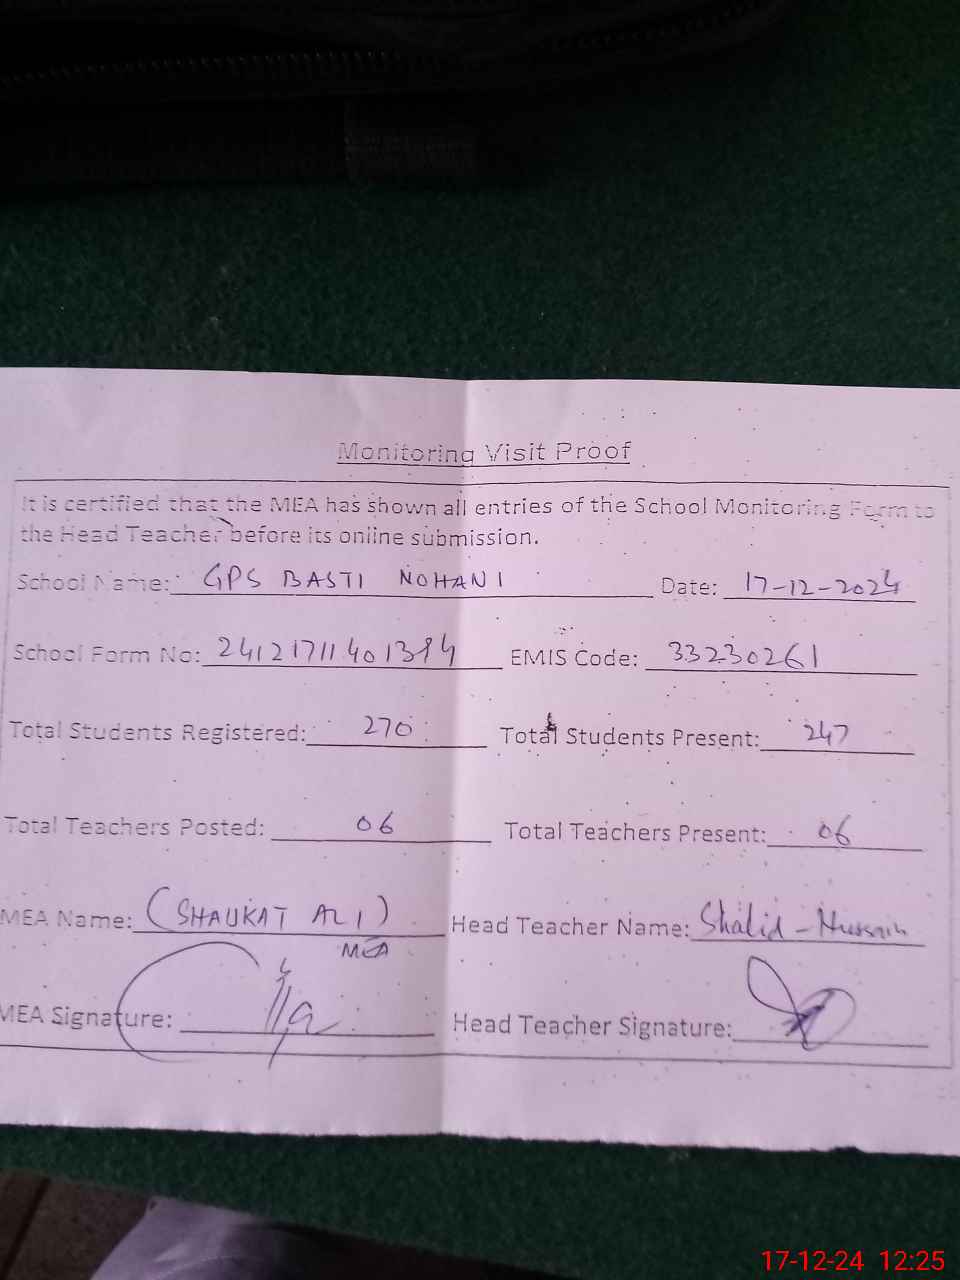 Monitoring Visit Proof
It is certified that the MEA has shown all entries of the School Monitoring Form to
the Head Teacher before its online submission.
School Name: GPS BASTI NOHANI Date: 17-12-2024
School Form No: EMIS Code: 33230261
Total Students Registered: 270 Total Students Present: 247
Total Teachers Posted: 06 Total Teachers Present: 06
MEA Name: (SHAUKAT ALI) Head Teacher Name: Shahid - Hussain
MEA
MEA Signature: Head Teacher Signature:
17-12-24 12:25